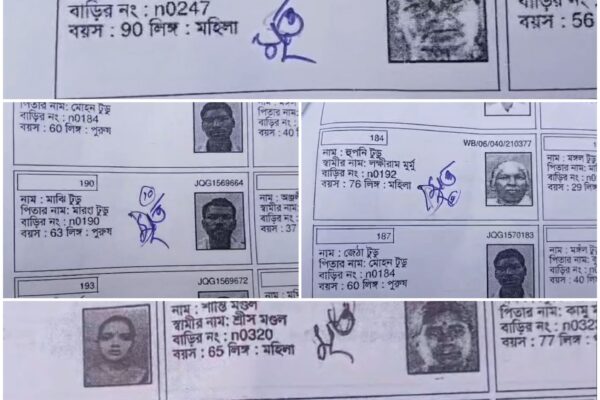 বাড়ির নং : n0247
বয়স : 90 লিঙ্গ : মহিলা
মৃত
বয়স : 56
পিতার নাম: মোহন টুডু
বাড়ির নং : n0184
বয়স : 60 লিঙ্গ : পুরুষ
বয়স : 40
190
JQG1569664
নাম : মাঝি টুডু
পিতার নাম: মারাং টুডু
বাড়ির নং : n0190
বয়স : 63 লিঙ্গ : পুরুষ
মৃত
বয়স : 37
193
JQG1569672
184
WB/06/040/210377
নাম : হুপনি টুডু
স্বামীর নাম: লক্ষীরাম মুর্মু
বাড়ির নং : n0192
বয়স : 76 লিঙ্গ : মহিলা
মৃত
নাম : মঙ্গল টুডু
বয়স : 29
187
JQG1570183
নাম : জেঠা টুডু
পিতার নাম: মোহন টুডু
বাড়ির নং : n0184
বয়স : 60 লিঙ্গ : পুরুষ
বয়স : 40
নাম : শান্তি মণ্ডল
স্বামীর নাম: শ্রীস মণ্ডল
বাড়ির নং : n0320
বয়স : 65 লিঙ্গ : মহিলা
মৃত
পিতার নাম: কামু
বাড়ির নং : n032
বয়স : 77